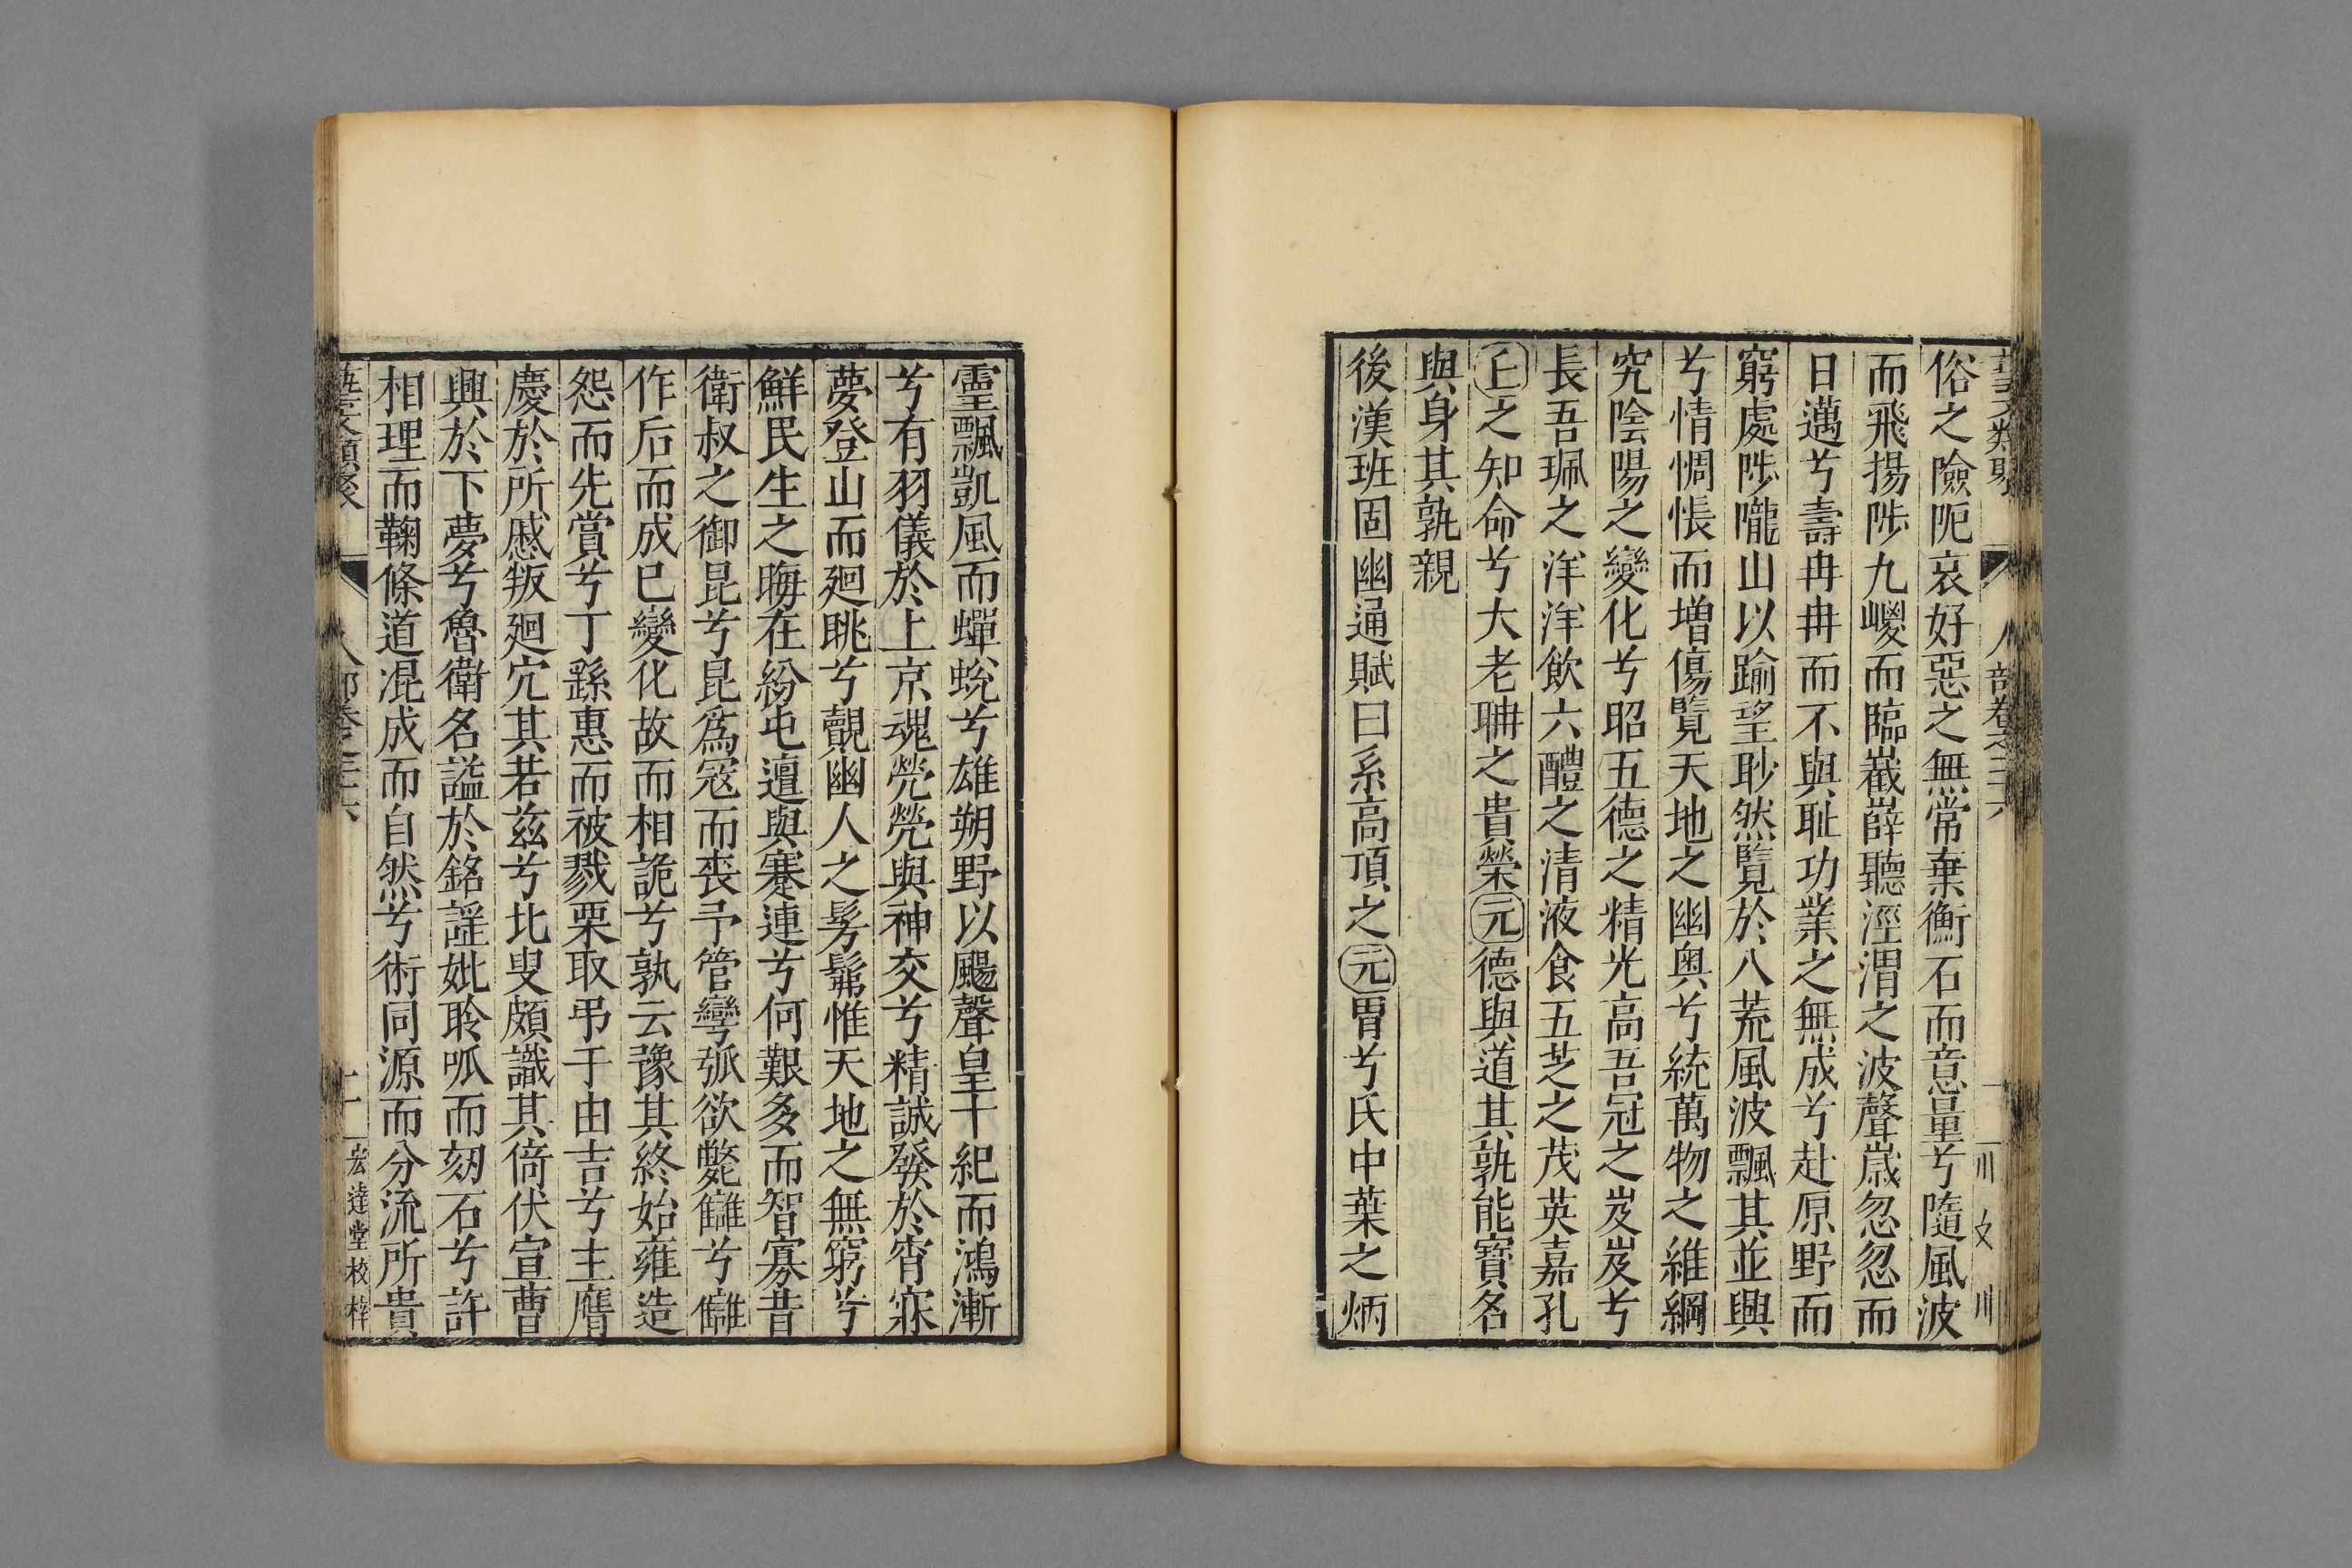 俗之險阨哀好惡之無常棄衡石而意量兮隨風波
而飛揚陟九嵕而臨嶻嶭聽涇渭之波聲歲忽忽而
日邁兮壽冉冉而不與耻功業之無成兮赴原野而
窮處陟隴山以踰望眇然覽於八荒風波飄其並興
兮情惆悵而增傷覽天地之幽奥兮統萬物之維綱
究陰陽之變化兮昭五德之精光高吾冠之岌岌兮
長吾珮之洋洋飲六醴之清液食五芝之茂英嘉孔
丘之知命兮大老聃之貴榮元德與道其孰能寶名
與身其孰親
後漢班固幽通賦曰系高頂之元胄兮氏中葉之炳
靈飄凱風而蟬蛻兮雄朔野以颺聲皇十紀而鴻漸
兮有羽儀於上京魂煢煢與神交兮精誠發於宵寐
夢登山而廻眺兮覿幽人之髣髴惟天地之無窮兮
鮮民生之晦在紛屯邅與蹇連兮何艱多而智寡昔
衛叔之御昆兮昆爲寇而喪予管彎弧欲斃讎兮讎
作后而成已變化故而相詭兮孰云豫其終始雍造
怨而先賞兮丁繇惠而被戮栗取弔于由吉兮主膺
慶於所慼叛廻宂其若兹兮北叟頗識其倚伏宣曹
興於下夢兮魯衛名謚於銘謡妣聆呱而刻石兮許
相理而鞠條道混成而自然兮術同源而分流所貴
藝文類聚 人部卷之二十六 宏達堂校梓